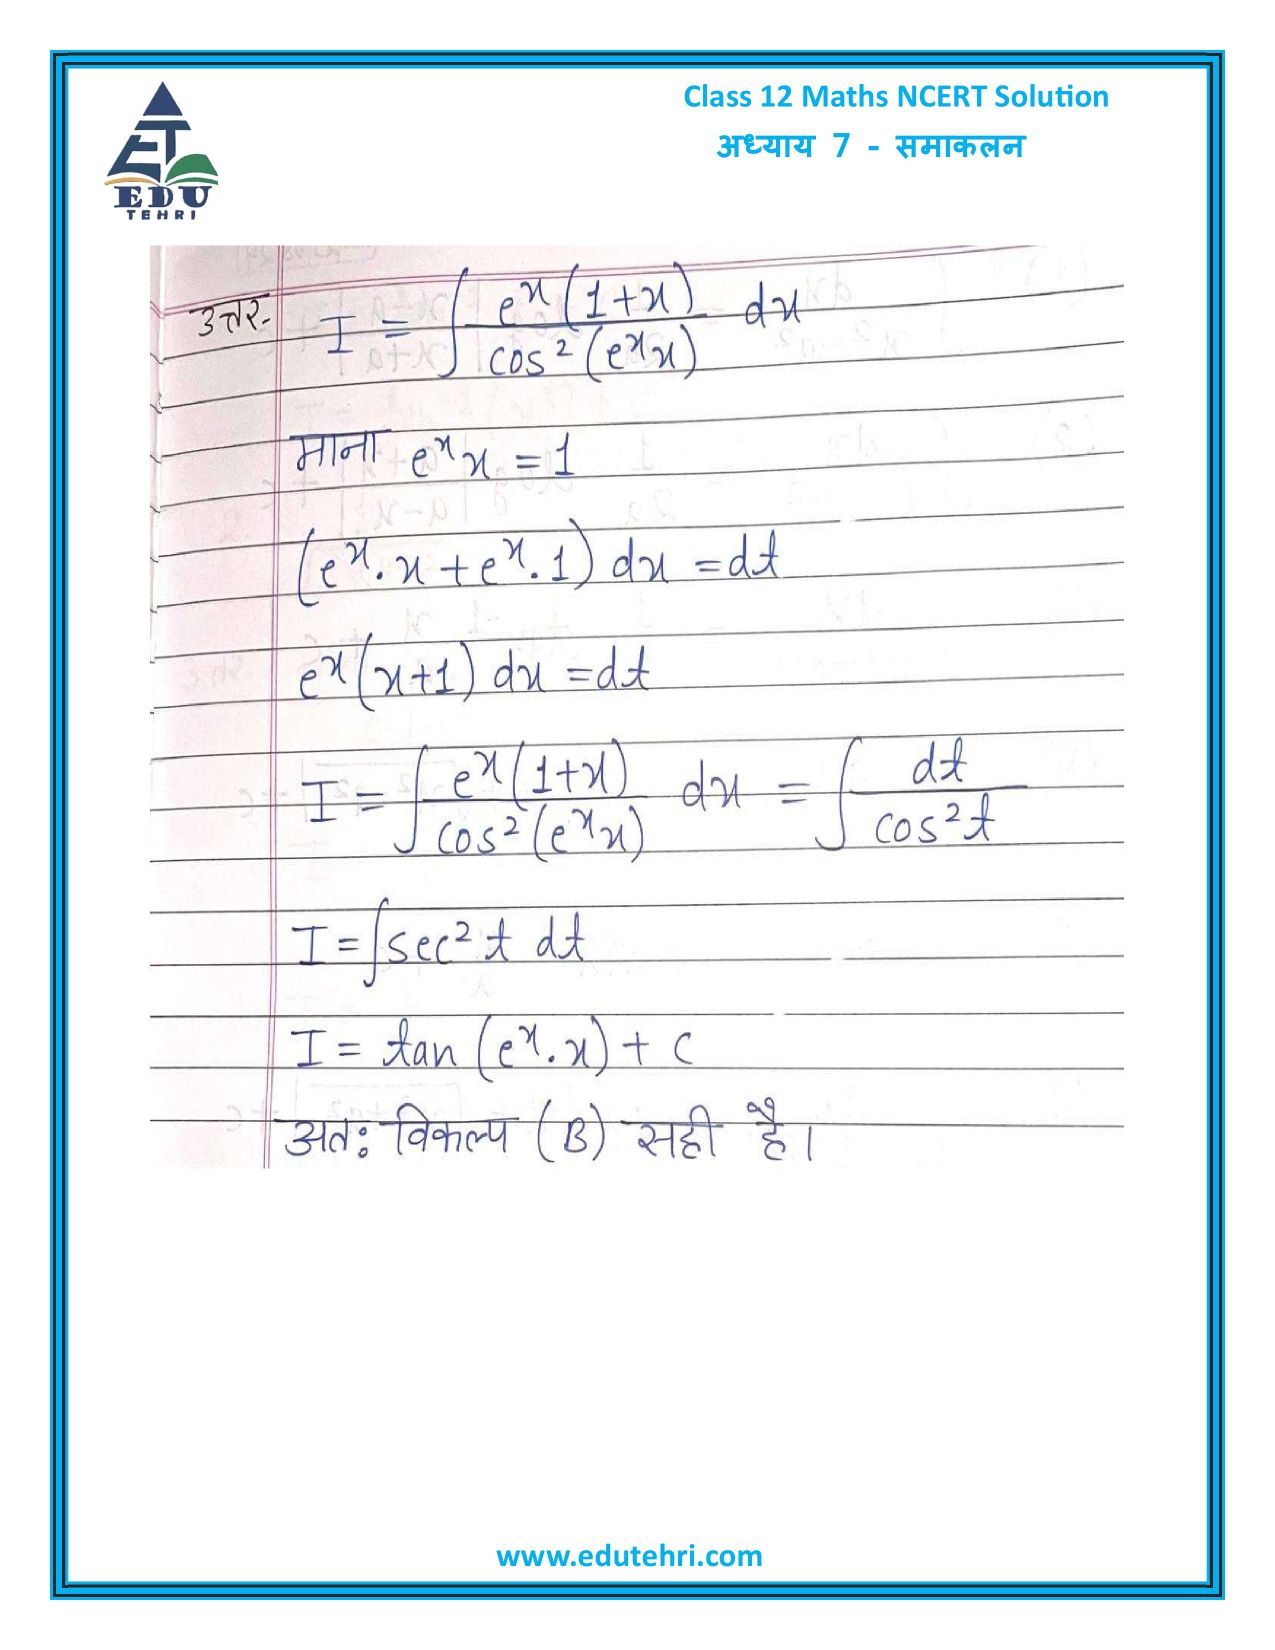 Class 12 Maths NCERT Solution
अध्याय 7 - समाकलन
EDU
TEHRI
उत्तर- I = ∫ e^x(1+x) / cos²(e^x x) dx
माना e^x x = 1
(e^x . x + e^x . 1) dx = dt
e^x (x+1) dx = dt
I = ∫ e^x(1+x) / cos²(e^x x) dx = ∫ dt / cos² t
I = ∫ sec² t dt
I = tan (e^x . x) + c
अतः विकल्प (B) सही है।
www.edutehri.com